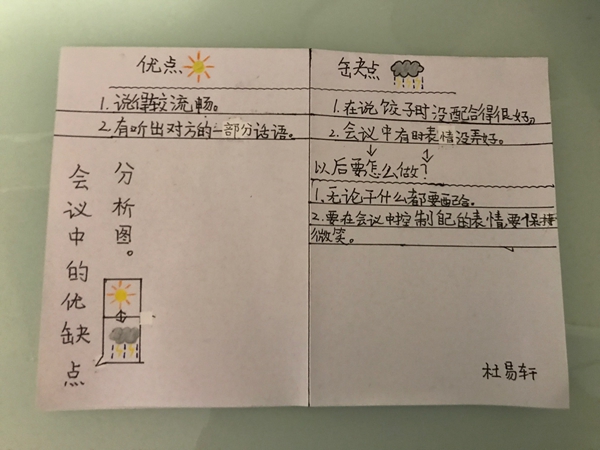 优点
1.说得较流畅。
2.有听出对方的一部分话语。
会议中的优缺点
分析图。
缺点
1.在说饺子时没配合得很好。
2.会议中有时表情没弄好。
以后要怎么做?
1.无论干什么都要配合。
2.要在会议中控制自己的表情,要保持
微笑。
杜易轩